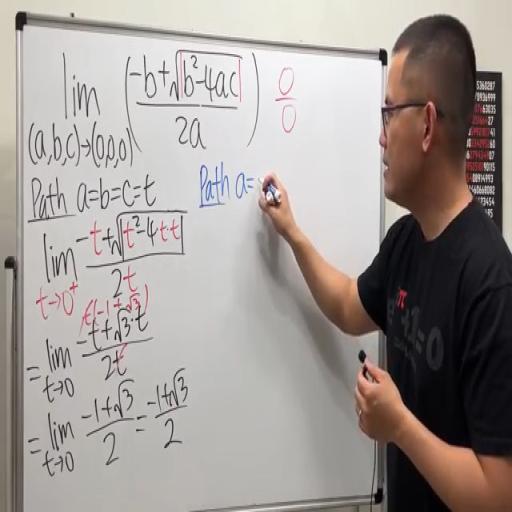 lim (a,b,c)→(0,0,0) ( (-b+√|b²-4ac|) / 2a ) 0/0
Path a=b=c=t
Path a=
lim t→0⁺ (-t+√|t²-4·t·t|) / 2t
t(-1+√3)
= lim t→0 (-t+√3·t) / 2t
= lim t→0 (-1+√3) / 2 = (-1+√3) / 2